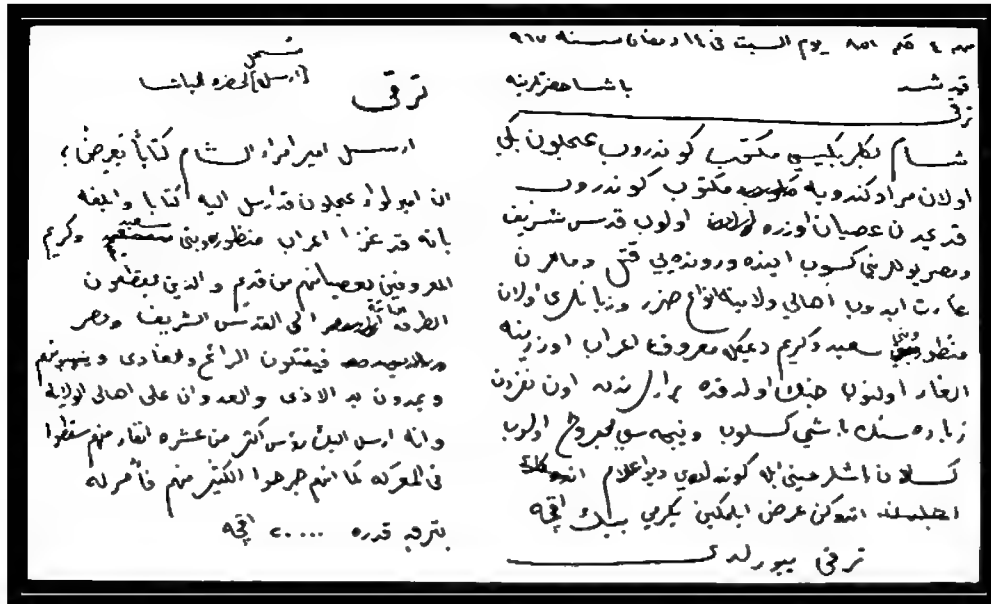 حكم ٨٥١ يوم السبت فى ١٤ رمضان سنه ٩٦٧
قيد شد باشا حضرتلرينه
ترقى
شام بكلربكيسى مكتوب كوندروب عجلون بكى
اولان مراد كندويه مكتوب كوندروب
قديمدن عصيان اوزره اولوب قدس شريف
ومصر يوللرينى كسوب آينده ورونده يى قتل ومالرن
غارت ايدوب اهالى ولايته انواع ضرر وزيانلرى اولان
منظور وبنى سعيد وكريم ديمكله معروف اعراب اوزرينه
الغار اولنوب جنك اولدقده اون نفردن
زياده سنك باشى كسلوب ونيجه سى مجروح اولوب
كسلان باشلر عينى ايله كوندردى ديو اعلام
اتدوكن عرض ايلمكين يكرمي بيك اقچه
ترقى بيورلدى
[ارسل] لحضرة الباشا
ترقى
ارسل امير امراء الشام كتاباً يعرض؛
ان اميرلواء عجلون قد ارسل اليه كتابا وابلغه
بانه قد غزا اعراب منظور وبنى سعيد وكريم
المعروفين بعصيانهم من قديم والذين يقطعون
الطرق الى القدس الشريف ومصر
فيقتلون الرائح والغادى وينهبونهم
ويمدون يد الاذى والعدوان على اهالى الولاية
وانه ارسل اليك رؤس اكثر من عشرة انفار منهم سقطوا
فى المعركه كما انهم جرحوا الكثير منهم فأمر له
بترقيه قدره ٢٠٠٠٠ اقچه